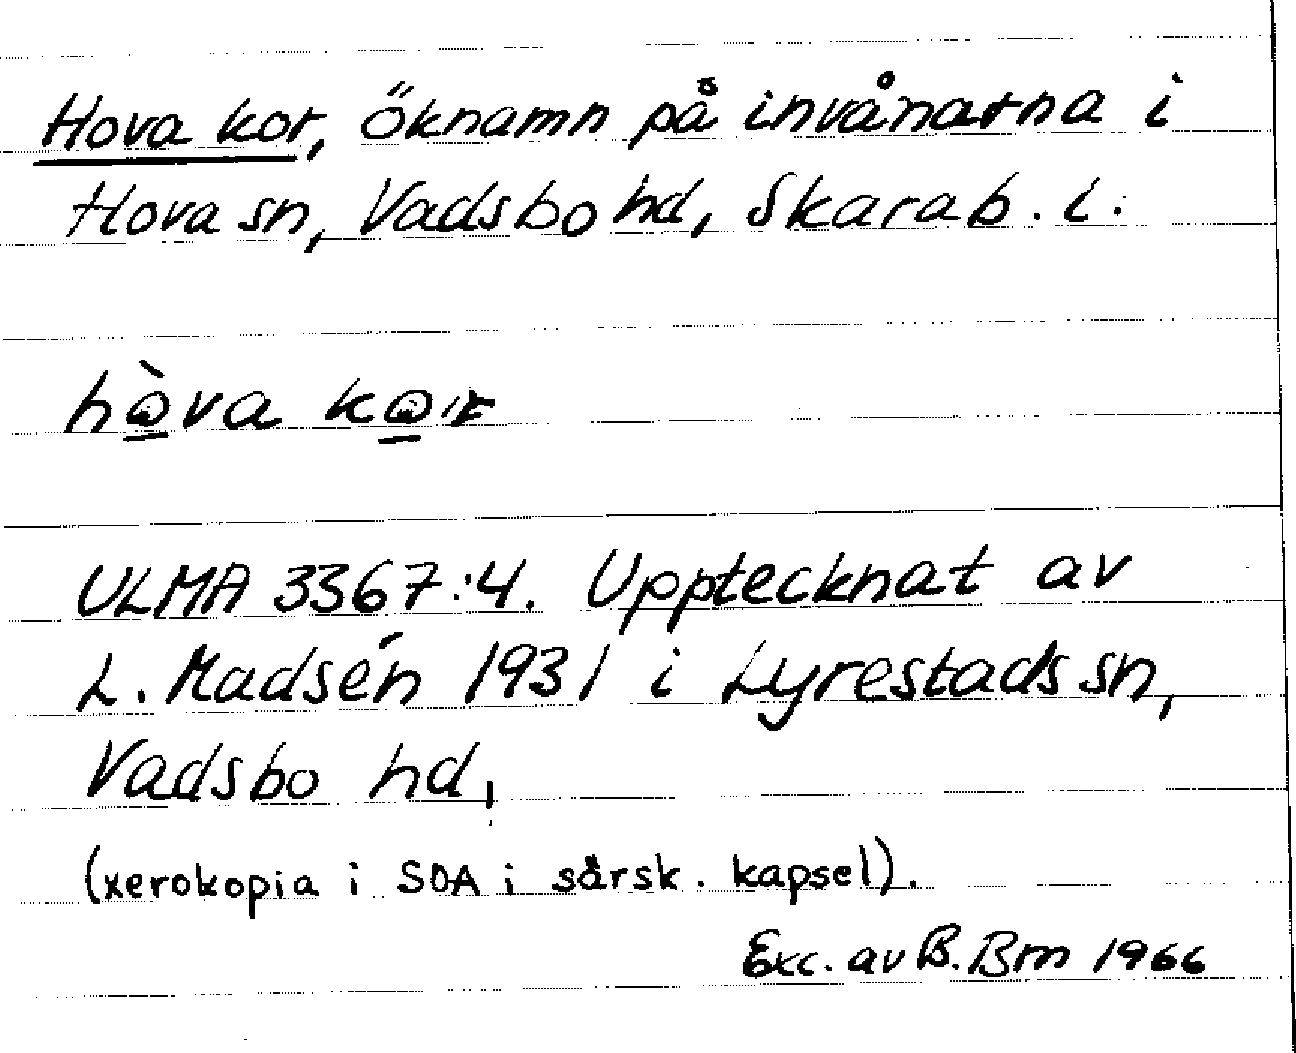 Hova kor, öknamn på invånarna i
Hova sn, Vadsbo hd, Skarab. L.
hòva
ULMA 3367:4. Upptecknat av
L. Madsén 1931 i Lyrestads sn,
Vadsbo hd,
(xerokopia i SOA i särsk. kapsel).
Exc. av B. Bm 1966